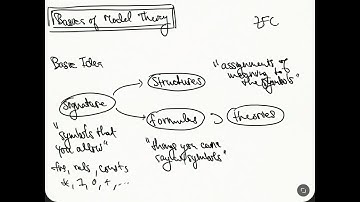 Basics of Model Theory
ZFC
Basic Idea
Structures
"assignments of
meaning to
the symbols"
signature
Formulas
theories
"symbols that
you allow"
fns, rels, consts
*, 1, 0, +, ...
"things you can
say w/ symbols"